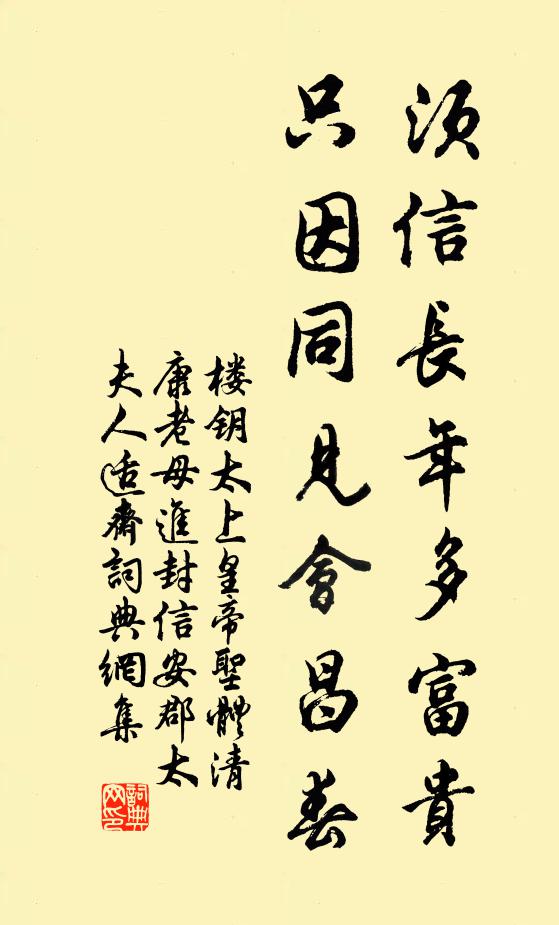 须信長年多富貴
只因同見會昌春
楼钥太上皇帝聖體清
康老母進封信安郡太
夫人适齋詞典網集
詞典網印